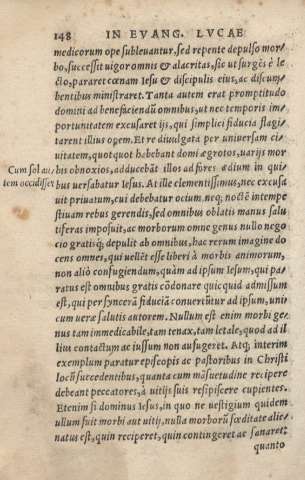 148 IN EVANG. LVCAE
medicorum ope subleuantur, sed repente depulso mor/
bo, successit uigor omnis & alacritas, sic ut surgēs è le
cto, pararet cœnam Iesu & discipulis eius, ac discum/
bentibus ministraret. Tanta autem erat promptitudo
domini ad beneficiendū omnibus, ut nec temporis im/
portunitatem excusaret ijs, qui simplici fiducia flagi/
tarent illius opem. Et re diuulgata per uniuersam ci/
uitatem, quotquot habebant domi ægrotos, uarijs mor
Cum sol au/
tem occidisset
bis obnoxios, adducebāt illos ad fores ædium in qui/
bus uersabatur Iesus. At ille clementissimus, nec excusa
uit priuatum, cui debebatur ocium, neq; nocte intempe
stiuam rebus gerendis, sed omnibus oblatis manus salu
tiferas imposuit, ac morborum omne genus nullo nego
cio gratisq; depulit ab omnibus, hac rerum imagine do
cens omnes, qui uellēt esse liberi à morbis animorum,
non aliò confugiendum, quàm ad ipsum Iesum, qui pa/
ratus est omnibus gratis cōdonare quicquid admissum
est, qui per syncerā fiduciā conuertūtur ad ipsum, uni/
cum ueræ salutis autorem. Nullum est enim morbi ge/
nus tam immedicabile, tam tenax, tam letale, quod ad il
lius contactum ac iussum non aufugeret. Atq; interim
exemplum paratur episcopis ac pastoribus in Christi
locū succedentibus, quanta cum māsuetudine recipere
debeant peccatores, à uitijs suis resipiscere cupientes.
Etenim si dominus Iesus, in quo ne uestigium quidem
ullum fuit morbi aut uitij, nulla morborū fœditate alie/
natus est, quin reciperet, quin contingeret ac sanaret:
quanto